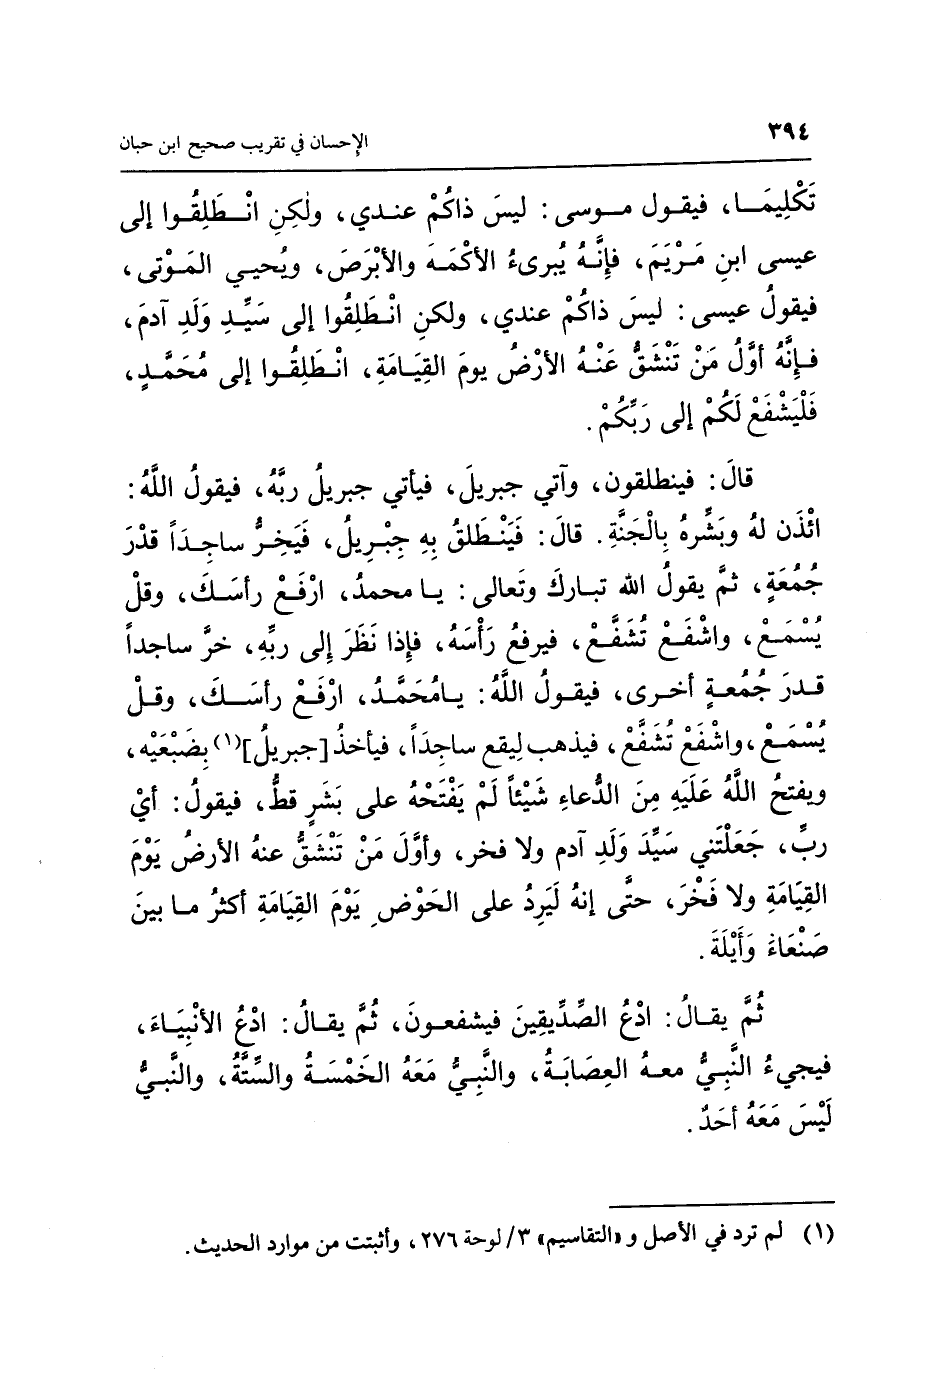 ٣٩٤
الإحسان في تقريب صحيح ابن حبان
تَكْلِيمَـا، فيقـول مـوسى: ليسَ ذاكُمْ عنـدي، ولكِنِ انْـطَلِقُـوا إلى
عيسى ابنِ مَـرْيَمَ، فإنَّـهُ يُبرىءُ الأكْمَـهَ والأبْرَصَ، ويُحيـي المَـوْتى،
فيقولُ عيسى: ليسَ ذاكُمْ عندي، ولكنِ انْـطَلِقُوا إلى سَيِّـدِ وَلَدِ آدمَ،
فـإنَّهُ أوَّلُ مَنْ تَنْشَقُّ عَنْـهُ الأرْضُ يومَ القِيَـامَةِ، انْـطَلِقُـوا إلى مُحَمَّـدٍ،
فَلْيَشْفَعْ لَكُمْ إلى رَبِّكُمْ.
قالَ: فينطلقون، وآتي جبريلَ، فيأتي جبريلُ ربَّهُ، فيقولُ اللَّهُ:
ائْذَن لهُ وبَشِّرهُ بِالْجَنَّةِ. قالَ: فَيَنْـطَلقُ بِهِ جِبْـرِيلُ، فَيَخِـرُّ ساجِـدَاً قدْرَ
جُمُعَةٍ، ثمَّ يقولُ الله تبـاركَ وتَعالى: يـا محمدُ، ارْفَـعْ رأسَـكَ، وقلْ
يُسْمَـعْ، واشْفَـعْ تُشَفَّـعْ، فيرفعُ رَأْسَهُ، فإذا نَظَرَ إلى ربِّهِ، خرَّ ساجداً
قـدرَ جُمُعـةٍ أخـرى، فيقـولُ اللَّهُ: يـامُحَمَّـدُ، ارْفَـعْ رأسَـكَ، وقـلْ
يُسْمَـعْ،واشْفَعْ تُشَفَّعْ، فيذهب لِيقع ساجِدَاً، فيأخذُ [جبريلُ](١) بِضَبْعَيْه،
ويفتحُ اللَّهُ عَلَيَهِ مِنَ الدُّعاءِ شَيْئاً لَمْ يَفْتَحْهُ على بَشَرٍ قطُّ، فيقولُ: أيْ
ربِّ، جَعَلْتَني سَيِّدَ وَلَدِ آدم ولا فخر، وأوَّلَ مَنْ تَنْشَقُّ عنهُ الأرضُ يَوْمَ
القِيَامَةِ ولا فَخْرَ، حتَّى إنهُ لَيَرِدُ على الحَوْضِ يَوْمَ القِيَامَةِ أكثرُ مـا بينَ
صَنْعَاءَ وَأَيْلَةَ.
ثُمَّ يقـالُ: ادْعُ الصِّدِّيقِينَ فيشفعـونَ، ثُمَّ يقـالُ: ادْعُ الأنْبِيَـاءَ،
فيجيءُ النَّبِيُّ معـهُ العِصَابَـةُ، والنَّبِـيُّ مَعَهُ الخَمْسَـةُ والسِّتَّةُ، والنَّبيُّ
لَيْسَ مَعَهُ أحَدٌ.
(١) لم ترد في الأصل و «التقاسيم» ٣/ لوحة ٢٧٦، وأثبتت من موارد الحديث.